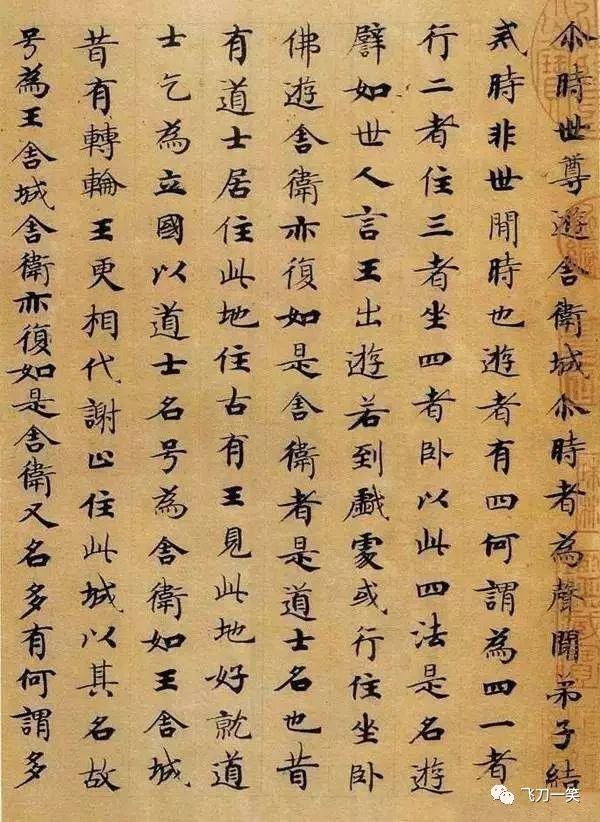 尒時世尊遊舎衛城尒時者為聲聞弟子結
戒時非世間時也遊者有四何謂為四一者
行二者住三者坐四者卧以此四法是名遊
譬如世人言王出遊若到戱處或行住坐卧
佛遊舎衛亦復如是舎衛者是道士名也昔
有道士居住此地住古有王見此地好就道
士乞為立國以道士名号為舎衛如王舎城
昔有轉輪王更相代謝止住此城以其名故
号為王舎城舎衛亦復如是舎衛又名多有何謂多
飞刀一笑